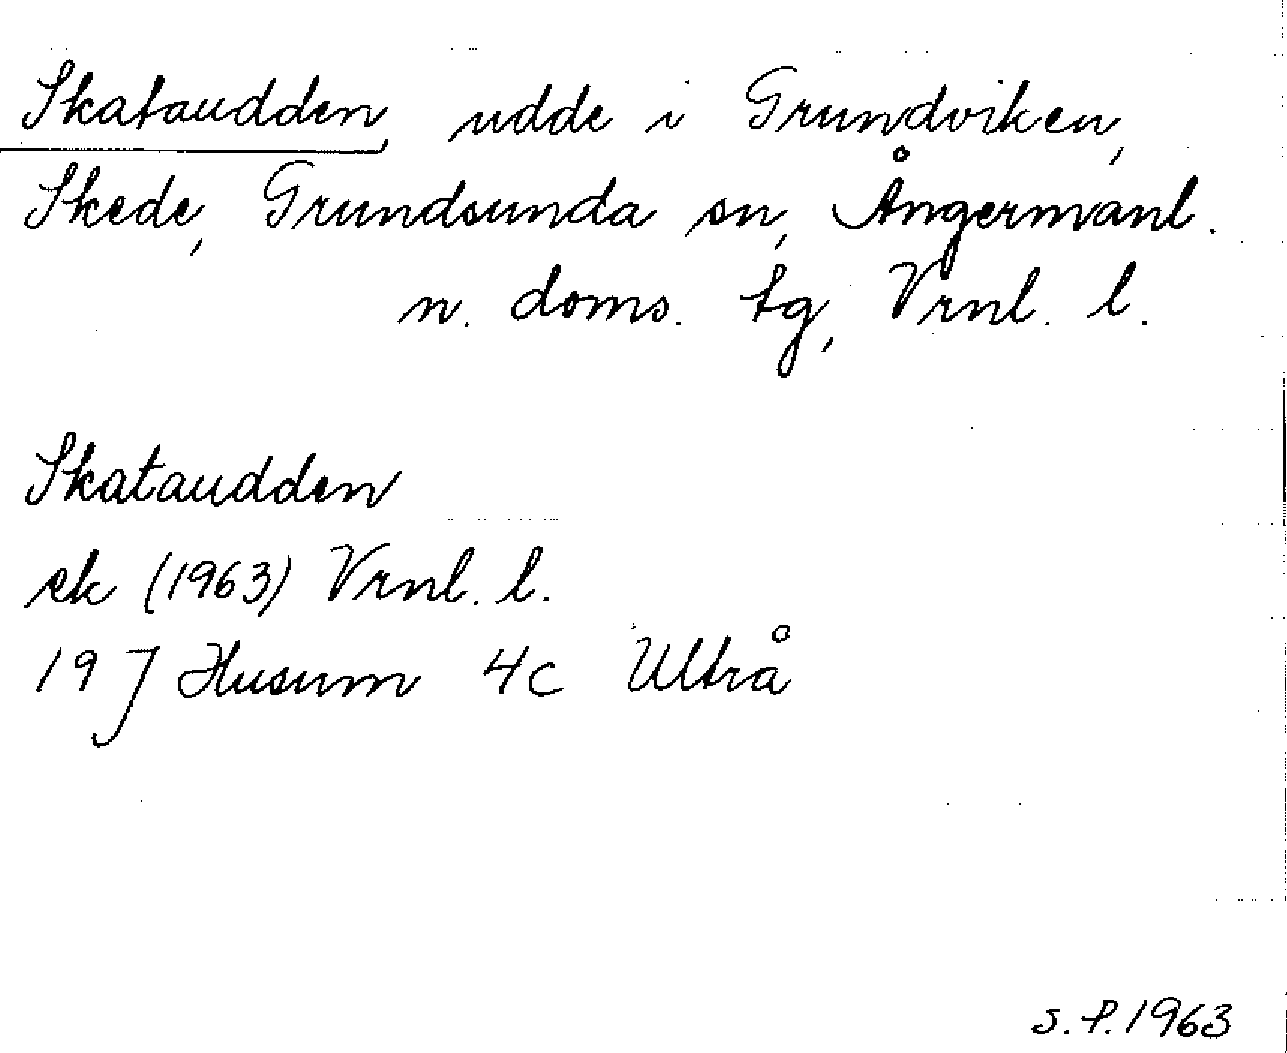 Skataudden, udde i Grundviken,
Skede, Grundsunda sn, Ångermanl.
n. doms. tg, Vrnl. l.
Skataudden
ek (1963) Vrnl. l.
19 J Husum 4c Ultrå
S.P. 1963